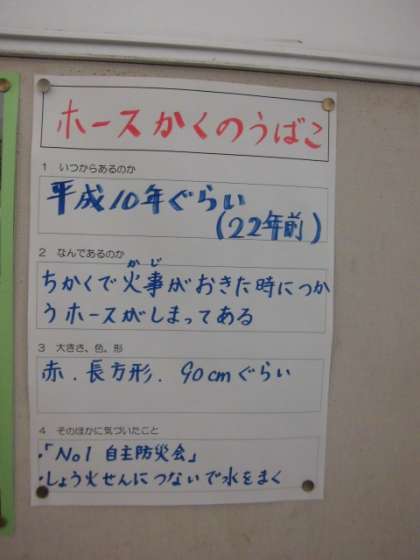 ホースかくのうばこ
1 いつからあるのか
平成10年ぐらい
(22年前)
2 なんであるのか
かじ
ちかくで火事がおきた時につか
うホースがしまってある
3 大きさ、色、形
赤.長方形.90cmぐらい
4 そのほかに気づいたこと
・「No1 自主防災会」
・しょう火せんにつないで水をまく